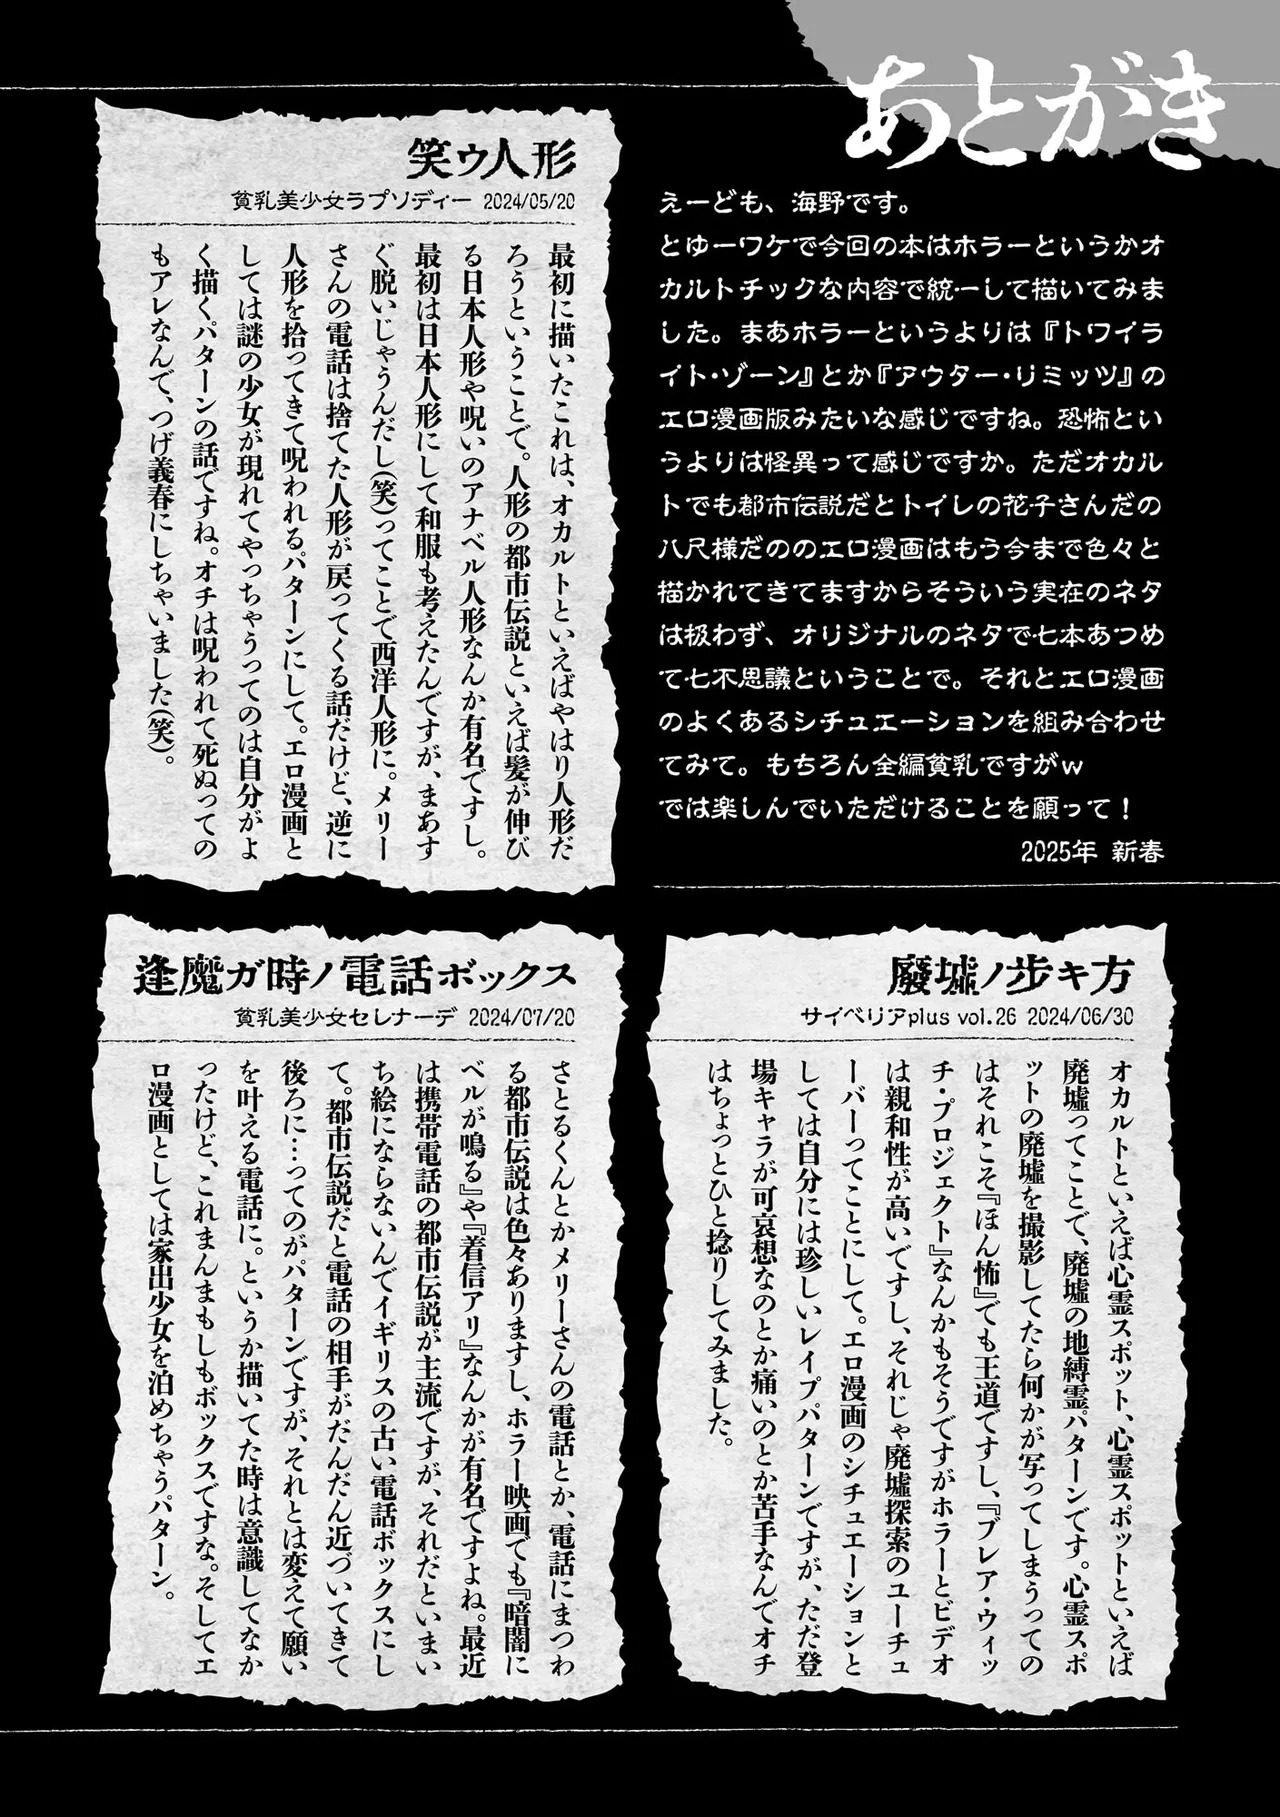 あとがき
えーども、海野です。
とゆーワケで今回の本はホラーというかオ
カルトチックな内容で統一して描いてみま
した。まあホラーというよりは『トワイラ
イト・ゾーン』とか『アウター・リミッツ』の
エロ漫画版みたいな感じですね。恐怖とい
うよりは怪異って感じですか。ただオカル
トでも都市伝説だとトイレの花子さんだの
八尺様だののエロ漫画はもう今まで色々と
描かれてきてますからそういう実在のネタ
は扱わず、オリジナルのネタで七本あつめ
て七不思議ということで。それとエロ漫画
のよくあるシチュエーションを組み合わせ
てみて。もちろん全編貧乳ですがｗ
では楽しんでいただけることを願って！
2025年 新春
笑ゥ人形
貧乳美少女ラプソディー 2024/05/20
最初に描いたこれは、オカルトといえばやはり人形だ
ろうということで。人形の都市伝説といえば髪が伸び
る日本人形や呪いのアナベル人形なんか有名ですし。
最初は日本人形にして和服も考えたんですが、まあす
ぐ脱いじゃうんだし（笑）ってことで西洋人形に。メリー
さんの電話は捨てた人形が戻ってくる話だけど、逆に
人形を拾ってきて呪われるパターンにして。エロ漫画と
しては謎の少女が現れてやっちゃうってのは自分がよ
く描くパターンの話ですね。オチは呪われて死ぬっての
もアレなんで、つげ義春にしちゃいました（笑）。
廃墟ノ歩キ方
サイベリアplus vol.26 2024/06/30
オカルトといえば心霊スポット、心霊スポットといえば
廃墟ってことで、廃墟の地縛霊パターンです。心霊スポ
ットの廃墟を撮影してたら何かが写ってしまうっての
はそれこそ『ほん怖』でも王道ですし、『ブレア・ウィッ
チ・プロジェクト』なんかもそうですがホラーとビデオ
は親和性が高いですし、それじゃ廃墟探索のユーチュ
ーバーってことにして。エロ漫画のシチュエーションと
しては自分には珍しいレイプパターンですが、ただ登
場キャラが可哀想なのとか痛いのとか苦手なんでオチ
はちょっとひと捻りしてみました。
逢魔ガ時ノ電話ボックス
貧乳美少女セレナーデ 2024/07/20
さとるくんとかメリーさんの電話とか、電話にまつわ
る都市伝説は色々ありますし、ホラー映画でも『暗闇に
ベルが鳴る』や『着信アリ』なんかが有名ですよね。最近
は携帯電話の都市伝説が主流ですが、それだといまい
ち絵にならないんでイギリスの古い電話ボックスにし
て。都市伝説だと電話の相手がだんだん近づいてきて
後ろに…ってのがパターンですが、それとは変えて願い
を叶える電話に。というか描いてた時は意識してなか
ったけど、これまんまもしもボックスですな。そしてエ
ロ漫画としては家出少女を泊めちゃうパターン。